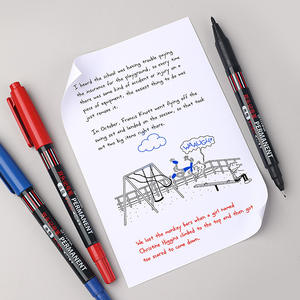 I heard the school was having trouble paying
the insurance for the playground, so every time
there was some kind of accident or injury on a
piece of equipment, the easiest thing to do was
just remove it.
In October, Francis Knott went flying off the
swing set and landed on the seesaw, so that took
out two big items right there.
WAUUGH!
We lost the monkey bars when a girl named
Christine Higgins climbed to the top and then got
too scared to come down.
PERMANENT
PERMANENT
PERMANENT